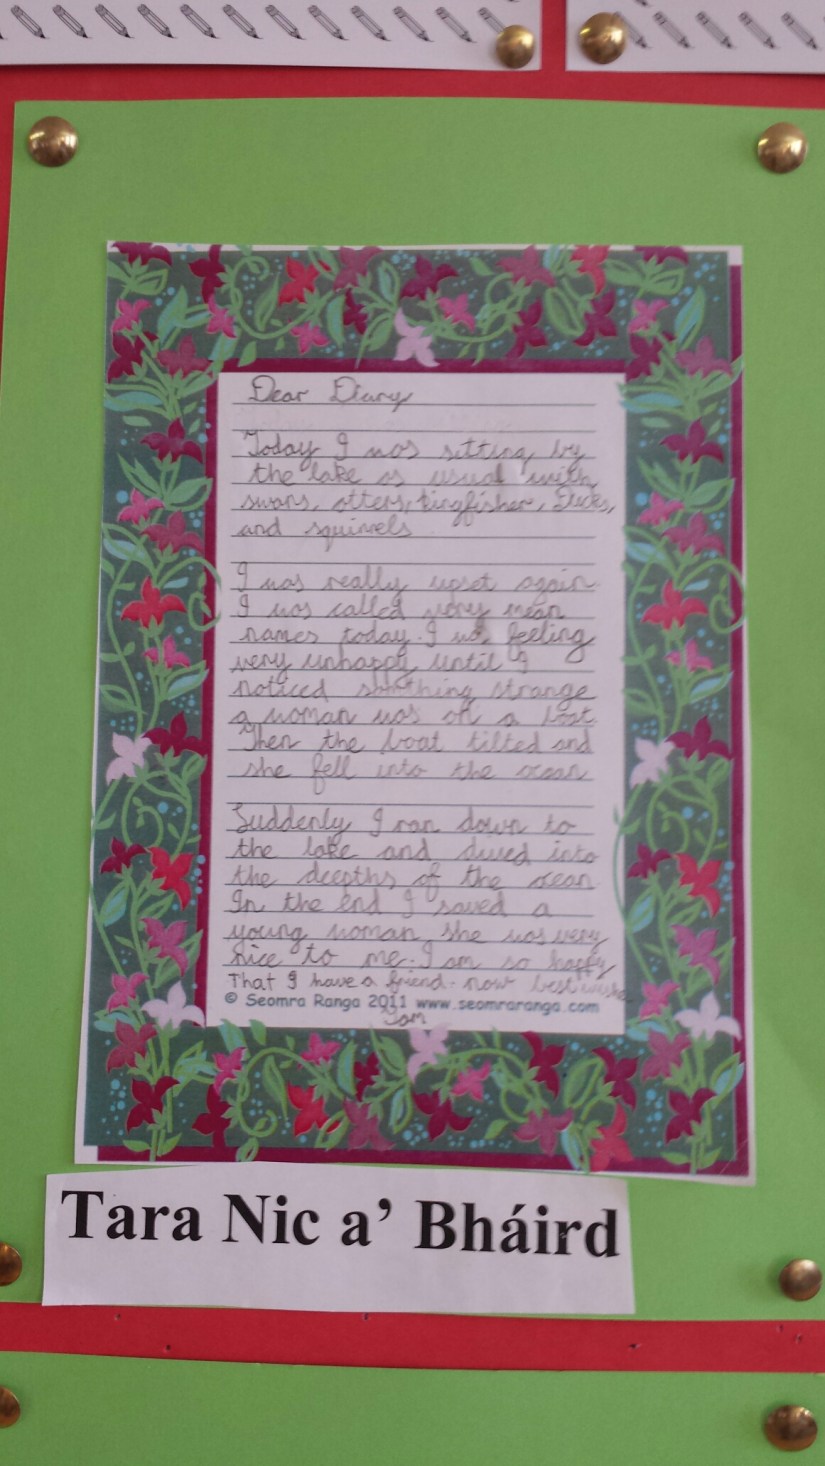 Dear Diary
Today I was sitting by
the lake as usual with
swans, otters, kingfisher, ducks,
and squirrels
I was really upset again.
I was called very mean
names today. I was feeling
very unhappy until I
noticed something strange
a woman was on a boat.
Then the boat tilted and
she fell into the ocean
Suddenly I ran down to
the lake and dived into
the deepths of the ocean.
In the end I saved a
young woman she was very
nice to me. I am so happy
That I have a friend. now best wishes
© Seomra Ranga 2011 www.seomraranga.com
Tom
Tara Nic a’ Bháird